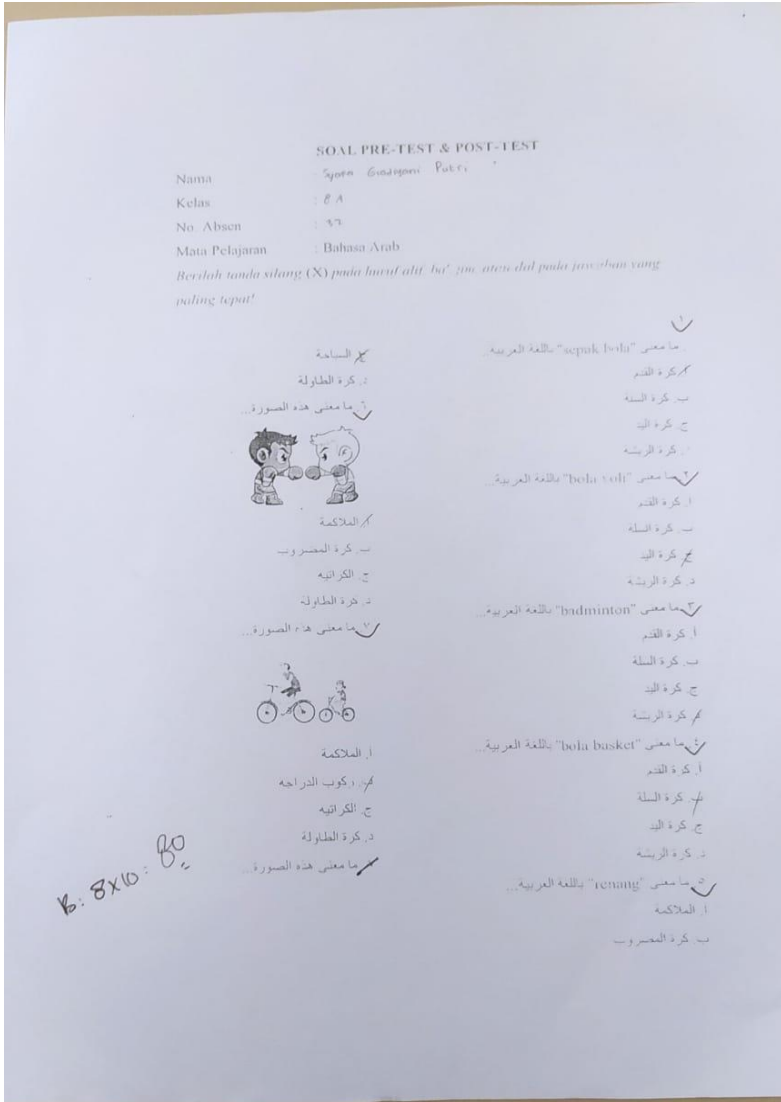 SOAL PRE-TEST & POST-TEST
Nama : Syara Putri
Kelas : 8 A
No. Absen :
Mata Pelajaran : Bahasa Arab
Berilah tanda silang (X) pada huruf alif, ba', jim, atau dal pada jawaban yang
paling tepat!
١
ما معنى "sepak bola" باللغة العربية
أ. كرة القدم
ب. كرة السلة
ج. كرة اليد
د. كرة الريشة
٢. ما معنى "bola voli" باللغة العربية...
أ. كرة القدم
ب. كرة السلة
ج. كرة اليد
د. كرة الريشة
٣. ما معنى "badminton" باللغة العربية...
أ. كرة القدم
ب. كرة السلة
ج. كرة اليد
د. كرة الريشة
٤. ما معنى "bola basket" باللغة العربية...
أ. كرة القدم
ب. كرة السلة
ج. كرة اليد
د. كرة الريشة
٥. ما معنى "renang" باللغة العربية...
أ. الملاكمة
ب. كرة المضروب
ج. السباحة
د. كرة الطاولة
٦. ما معنى هذه الصورة...
أ. الملاكمة
ب. كرة المضروب
ج. الكراتيه
د. كرة الطاولة
٧. ما معنى هذه الصورة...
أ. الملاكمة
ب. ركوب الدراجه
ج. الكراتيه
د. كرة الطاولة
ما معنى هذه الصورة...
B: 8x10: 80